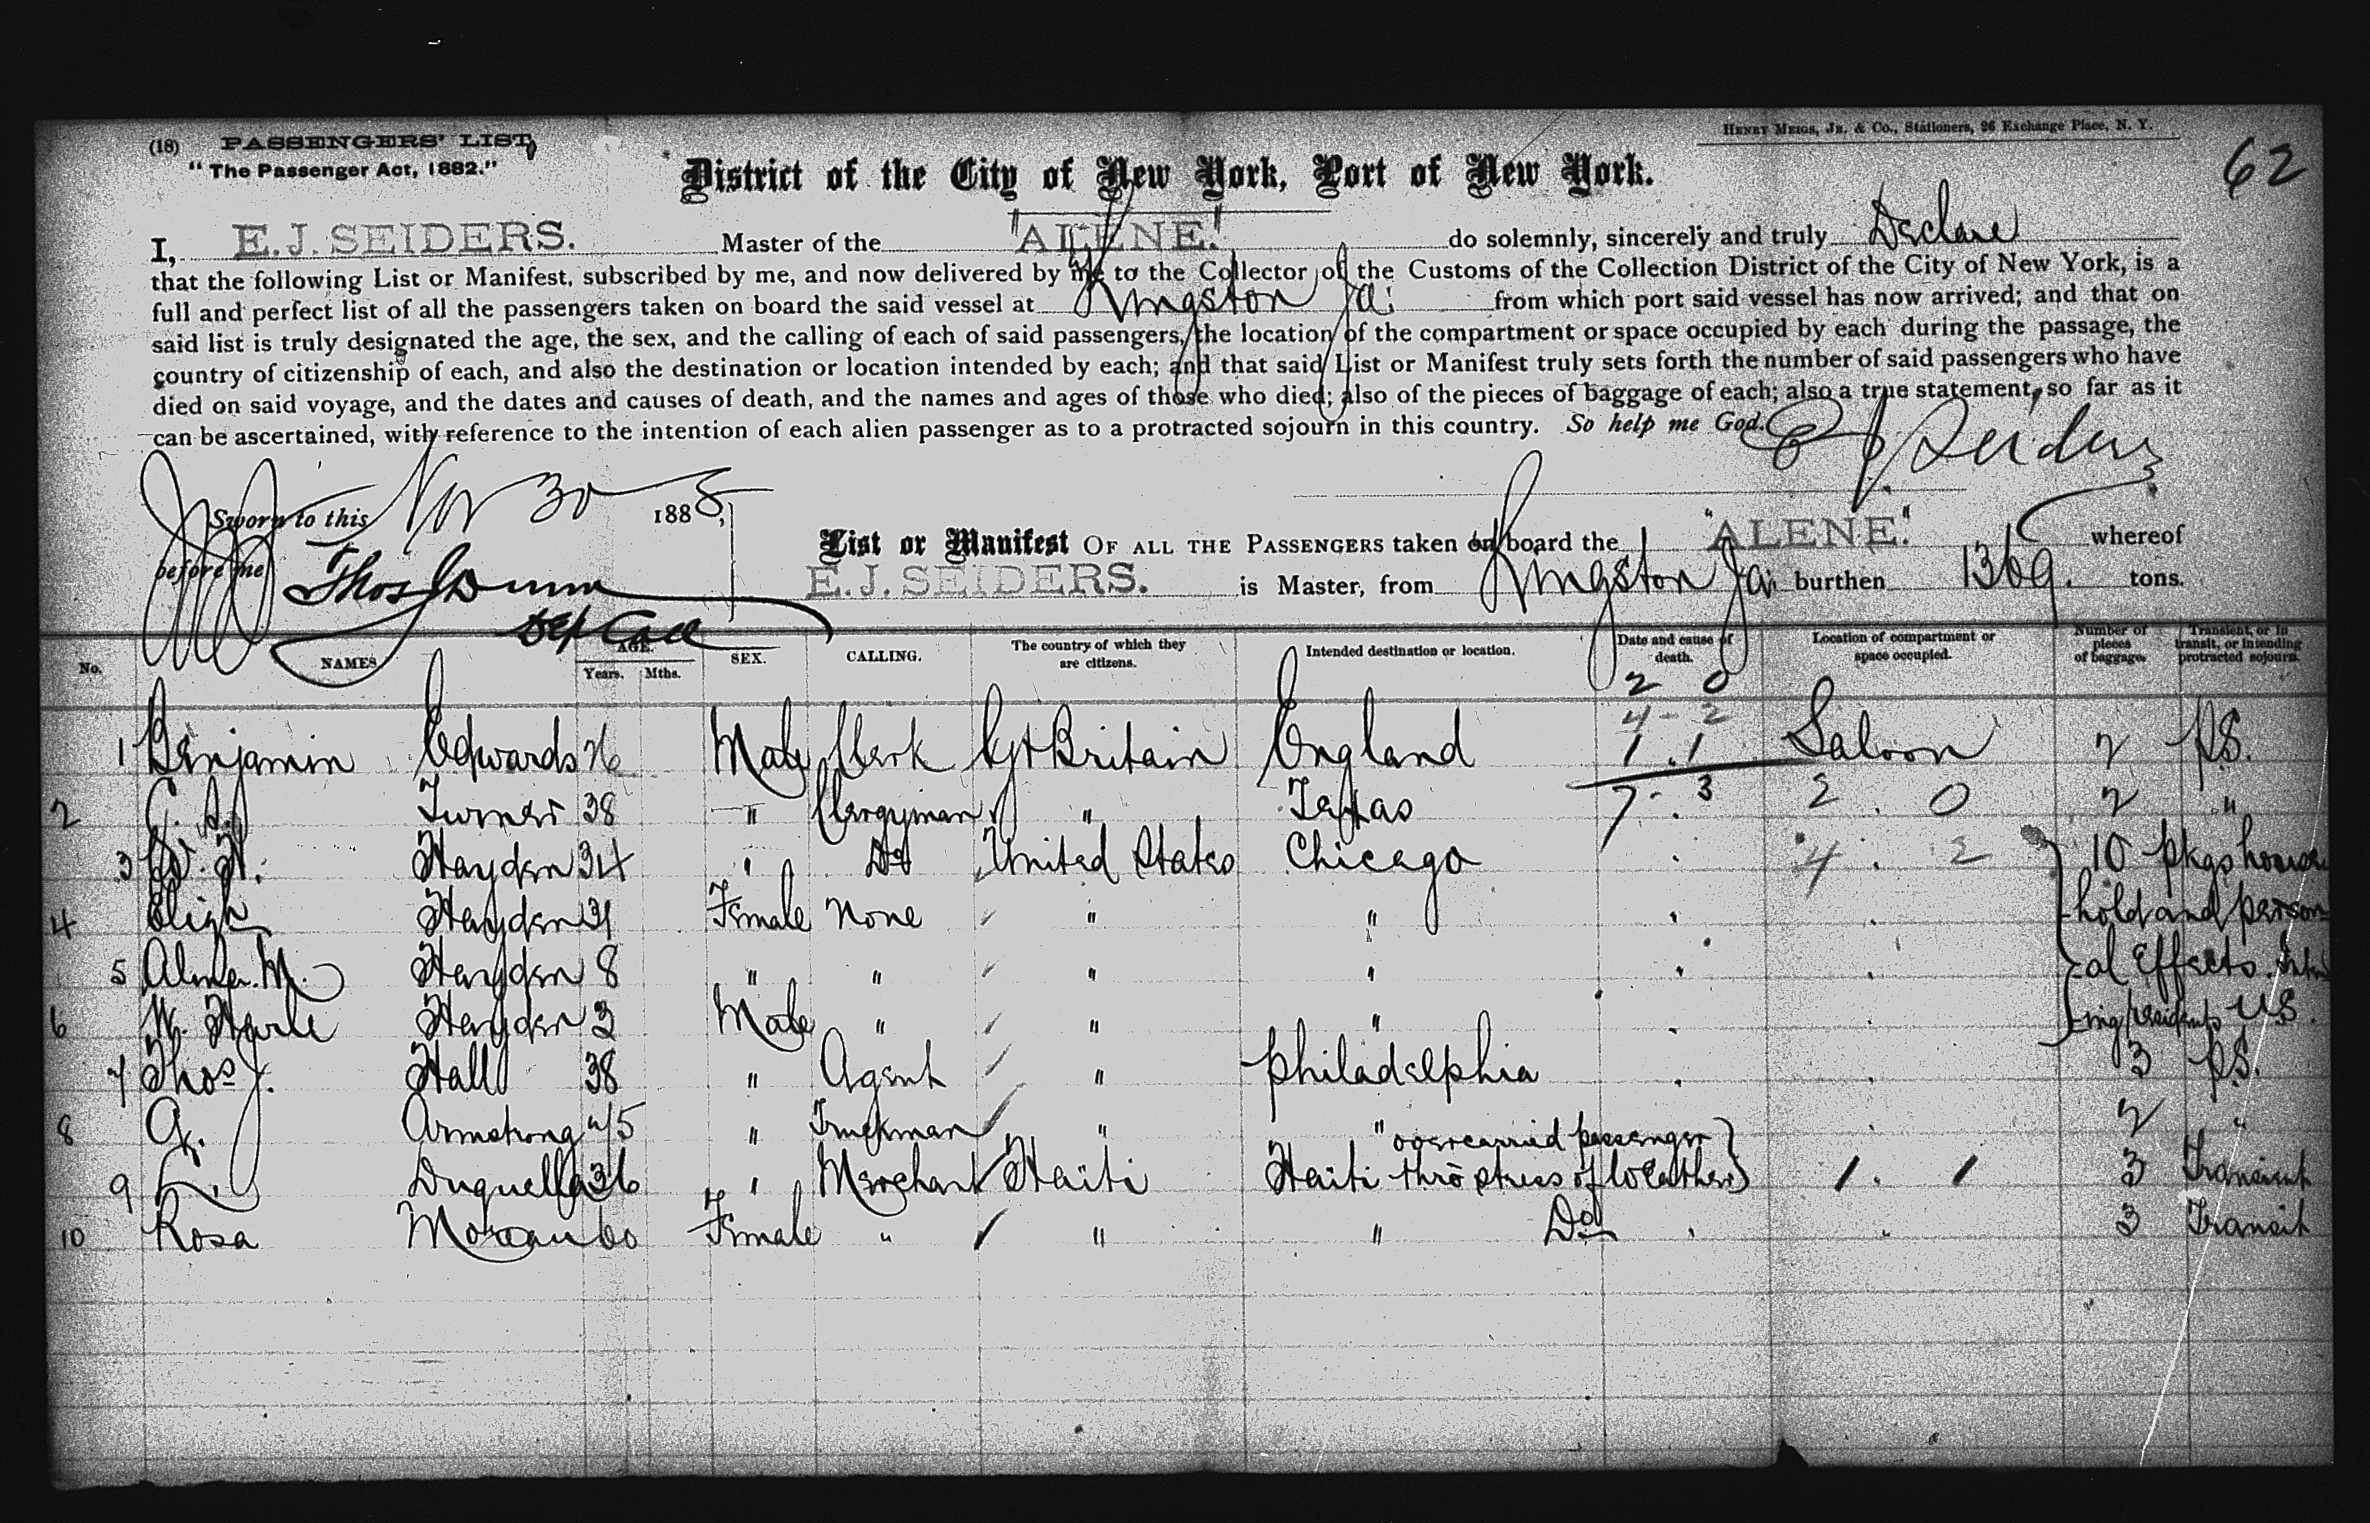 HENRY MEIGS, JR. & Co., Stationers, 96 Exchange Place, N. Y.
(18) PASSENGERS' LIST,
"The Passenger Act, 1882."
62
District of the City of New York, Port of New York.
I, E.J. SEIDERS. Master of the "ALENE." do solemnly, sincerely and truly Declare
that the following List or Manifest, subscribed by me, and now delivered by me to the Collector of the Customs of the Collection District of the City of New York, is a
full and perfect list of all the passengers taken on board the said vessel at Kingston Ja: from which port said vessel has now arrived; and that on
said list is truly designated the age, the sex, and the calling of each of said passengers, the location of the compartment or space occupied by each during the passage, the
country of citizenship of each, and also the destination or location intended by each; and that said List or Manifest truly sets forth the number of said passengers who have
died on said voyage, and the dates and causes of death, and the names and ages of those who died; also of the pieces of baggage of each; also a true statement, so far as it
can be ascertained, with reference to the intention of each alien passenger as to a protracted sojourn in this country. So help me God.
E J Seiders
Sworn to this Nov 30 1888,
before me Thos
Dep Coll
List or Manifest OF ALL THE PASSENGERS taken on board the "ALENE." whereof
E.J. SEIDERS. is Master, from Kingston Ja: burthen 1369. tons.
No. NAMES AGE. Years. Mths. SEX. CALLING. The country of which they are citizens. Intended destination or location. Date and cause of death. Location of compartment or space occupied. Number of pieces of baggage. Transient, or in transit, or intending protracted sojourn.
2 0
4 - 2
1 Benjamin Edwards 26 Male Clerk Gt Britain England 1 . 1 Saloon 2 P.S.
2 Turner 38 " Clergyman " Texas 7 - 3 2 . 0 2 "
3 W. H. Hayden 34 " Do United States Chicago 4 . 2 10 pkgs house
4 Hayden 31 Female None " " hold and person
5 Alma. M. Hayden 8 " " " " al Effects.
6 W. Hayden 3 Male " " " ing residents U.S.
7 Thos J. Hall 38 " Agent " Philadelphia 3 P.S.
8 G. Armstrong 45 " Truckman " " 2 "
overcarried passenger
9 36 " Merchant Haiti Haiti thro stress of Weather 1 . 1 3 Transient
10 Rosa 60 Female " " " Do 3 Transit